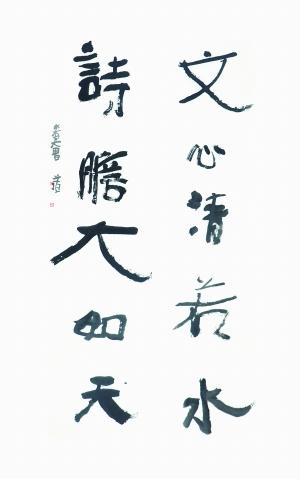 文心清若水
詩膽大如天